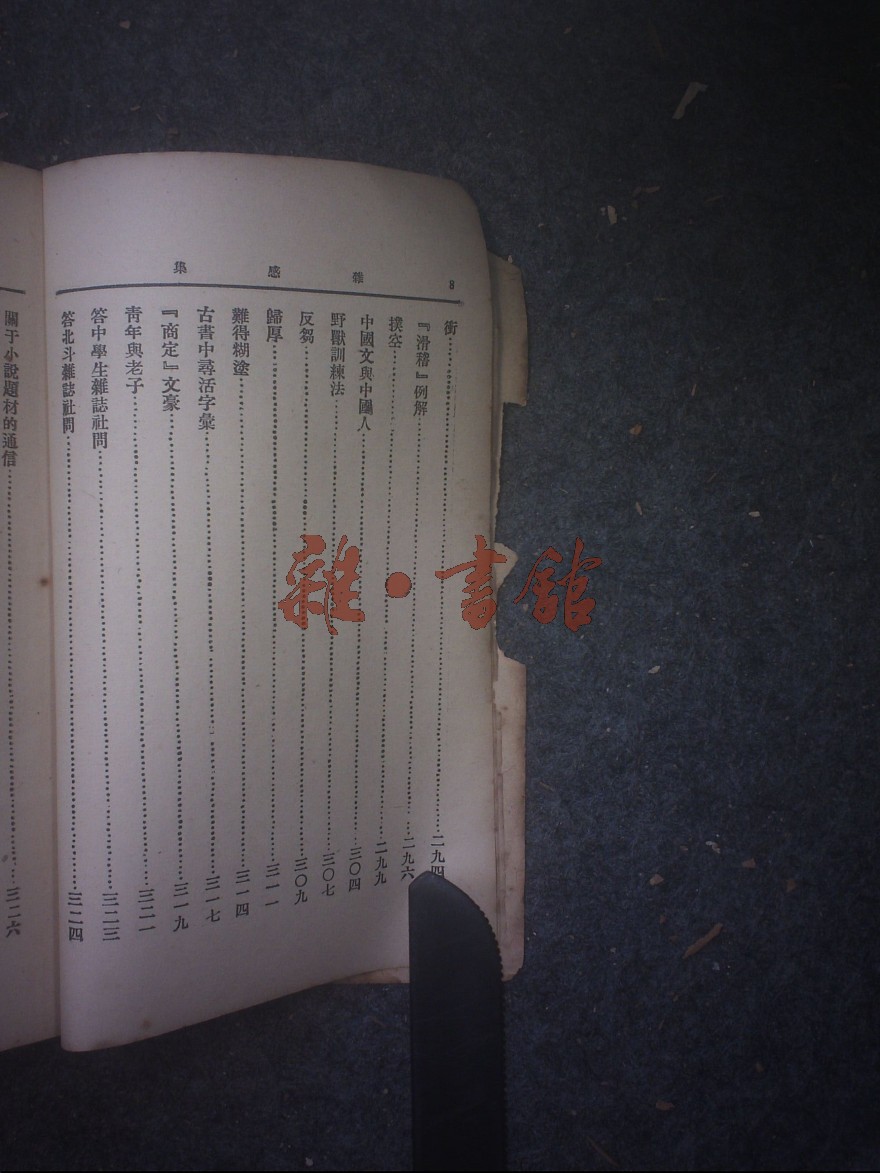 8
雜感集
衝……二九四
『滑稽』例解……二九六
撲空……二九九
中國文與中國人……三〇四
野獸訓練法……三〇七
反芻……三〇九
歸厚……三一一
難得糊塗……三一四
古書中尋活字彙……三一七
『商定』文豪……三一九
青年與老子……三二一
答中學生雜誌社問……三二三
答北斗雜誌社問……三二四
關于小說題材的通信……三二六
雜·書館